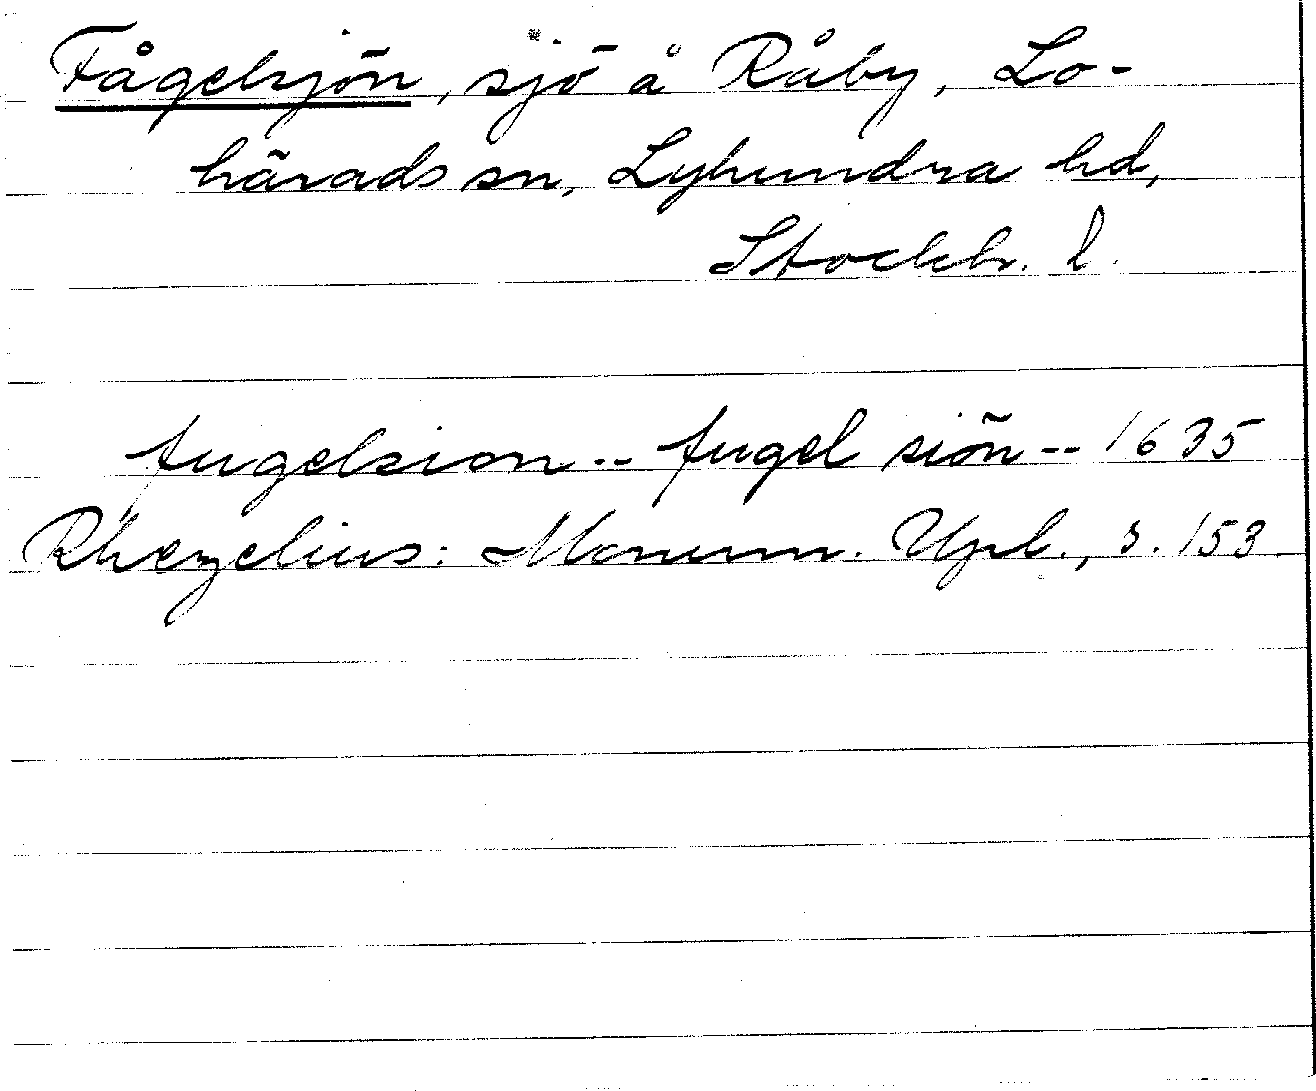 Fågelsjön, sjö å Råby, Lo-
härads sn, Lyhundra hd,
Stockh. l.
fugelsion -- fugel siön -- 1635
Rhezelius: Monum. Upl., s. 153.